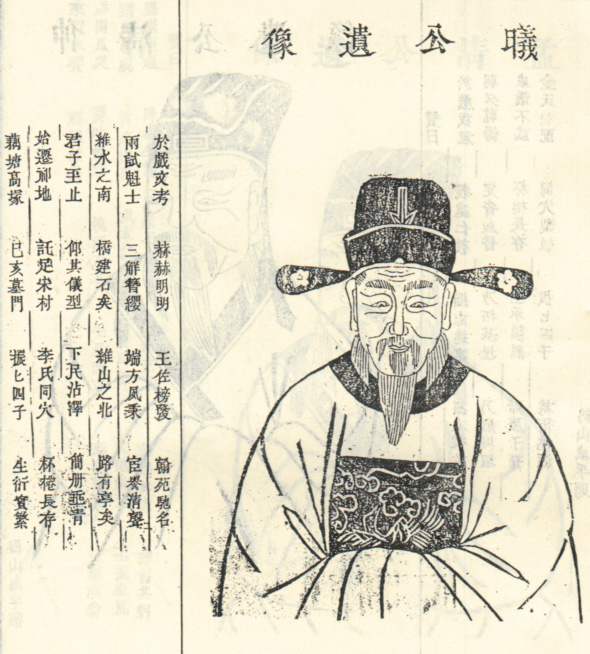 曦公遺像
於戲文考 赫赫明明 王佐榜發 翰苑馳名
兩試魁士 三解簪纓 端方風秉 宦清聲
維水之南 橋建石矣 維山之北 路有亭矣
君子至止 仰其儀型 下民沾澤 簡册垂青
始遷祁地 託足宋村 李氏同穴 杯棬長存
藕塘高塚 已亥墓門 七四子 生衍實繁